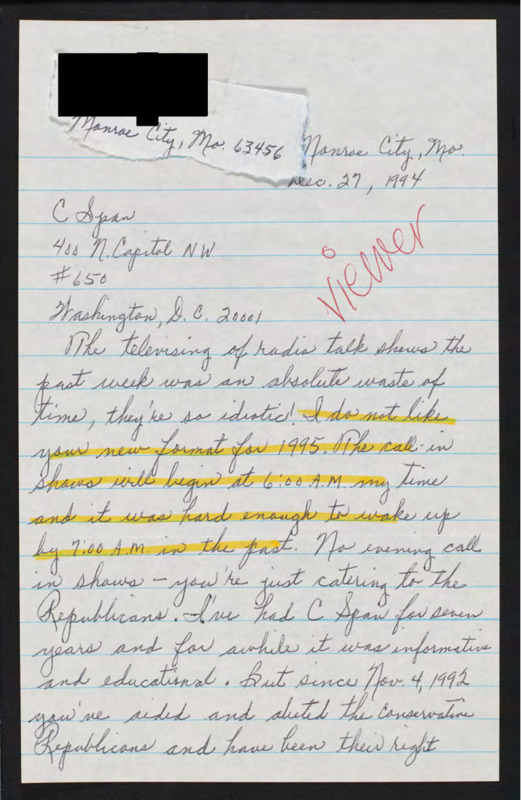 Monroe City, Mo. 63456
Monroe City, Mo.
Dec. 27, 1994
C Span
400 N. Capitol NW
#650
viewer
Washington, D.C. 20001
The televising of radio talk shows the
past week was an absolute waste of
time, they're so idiotic! I do not like
your new format for 1995. The call-in
shows will begin at 6:00 A.M. my time
and it was hard enough to wake up
by 7:00 A.M. in the past. No evening call
in shows – you're just catering to the
Republicans. I've had C Span for seven
years and for awhile it was informative
and educational. But since Nov. 4, 1992
you've aided and abeted the conservative
Republicans and have been their right